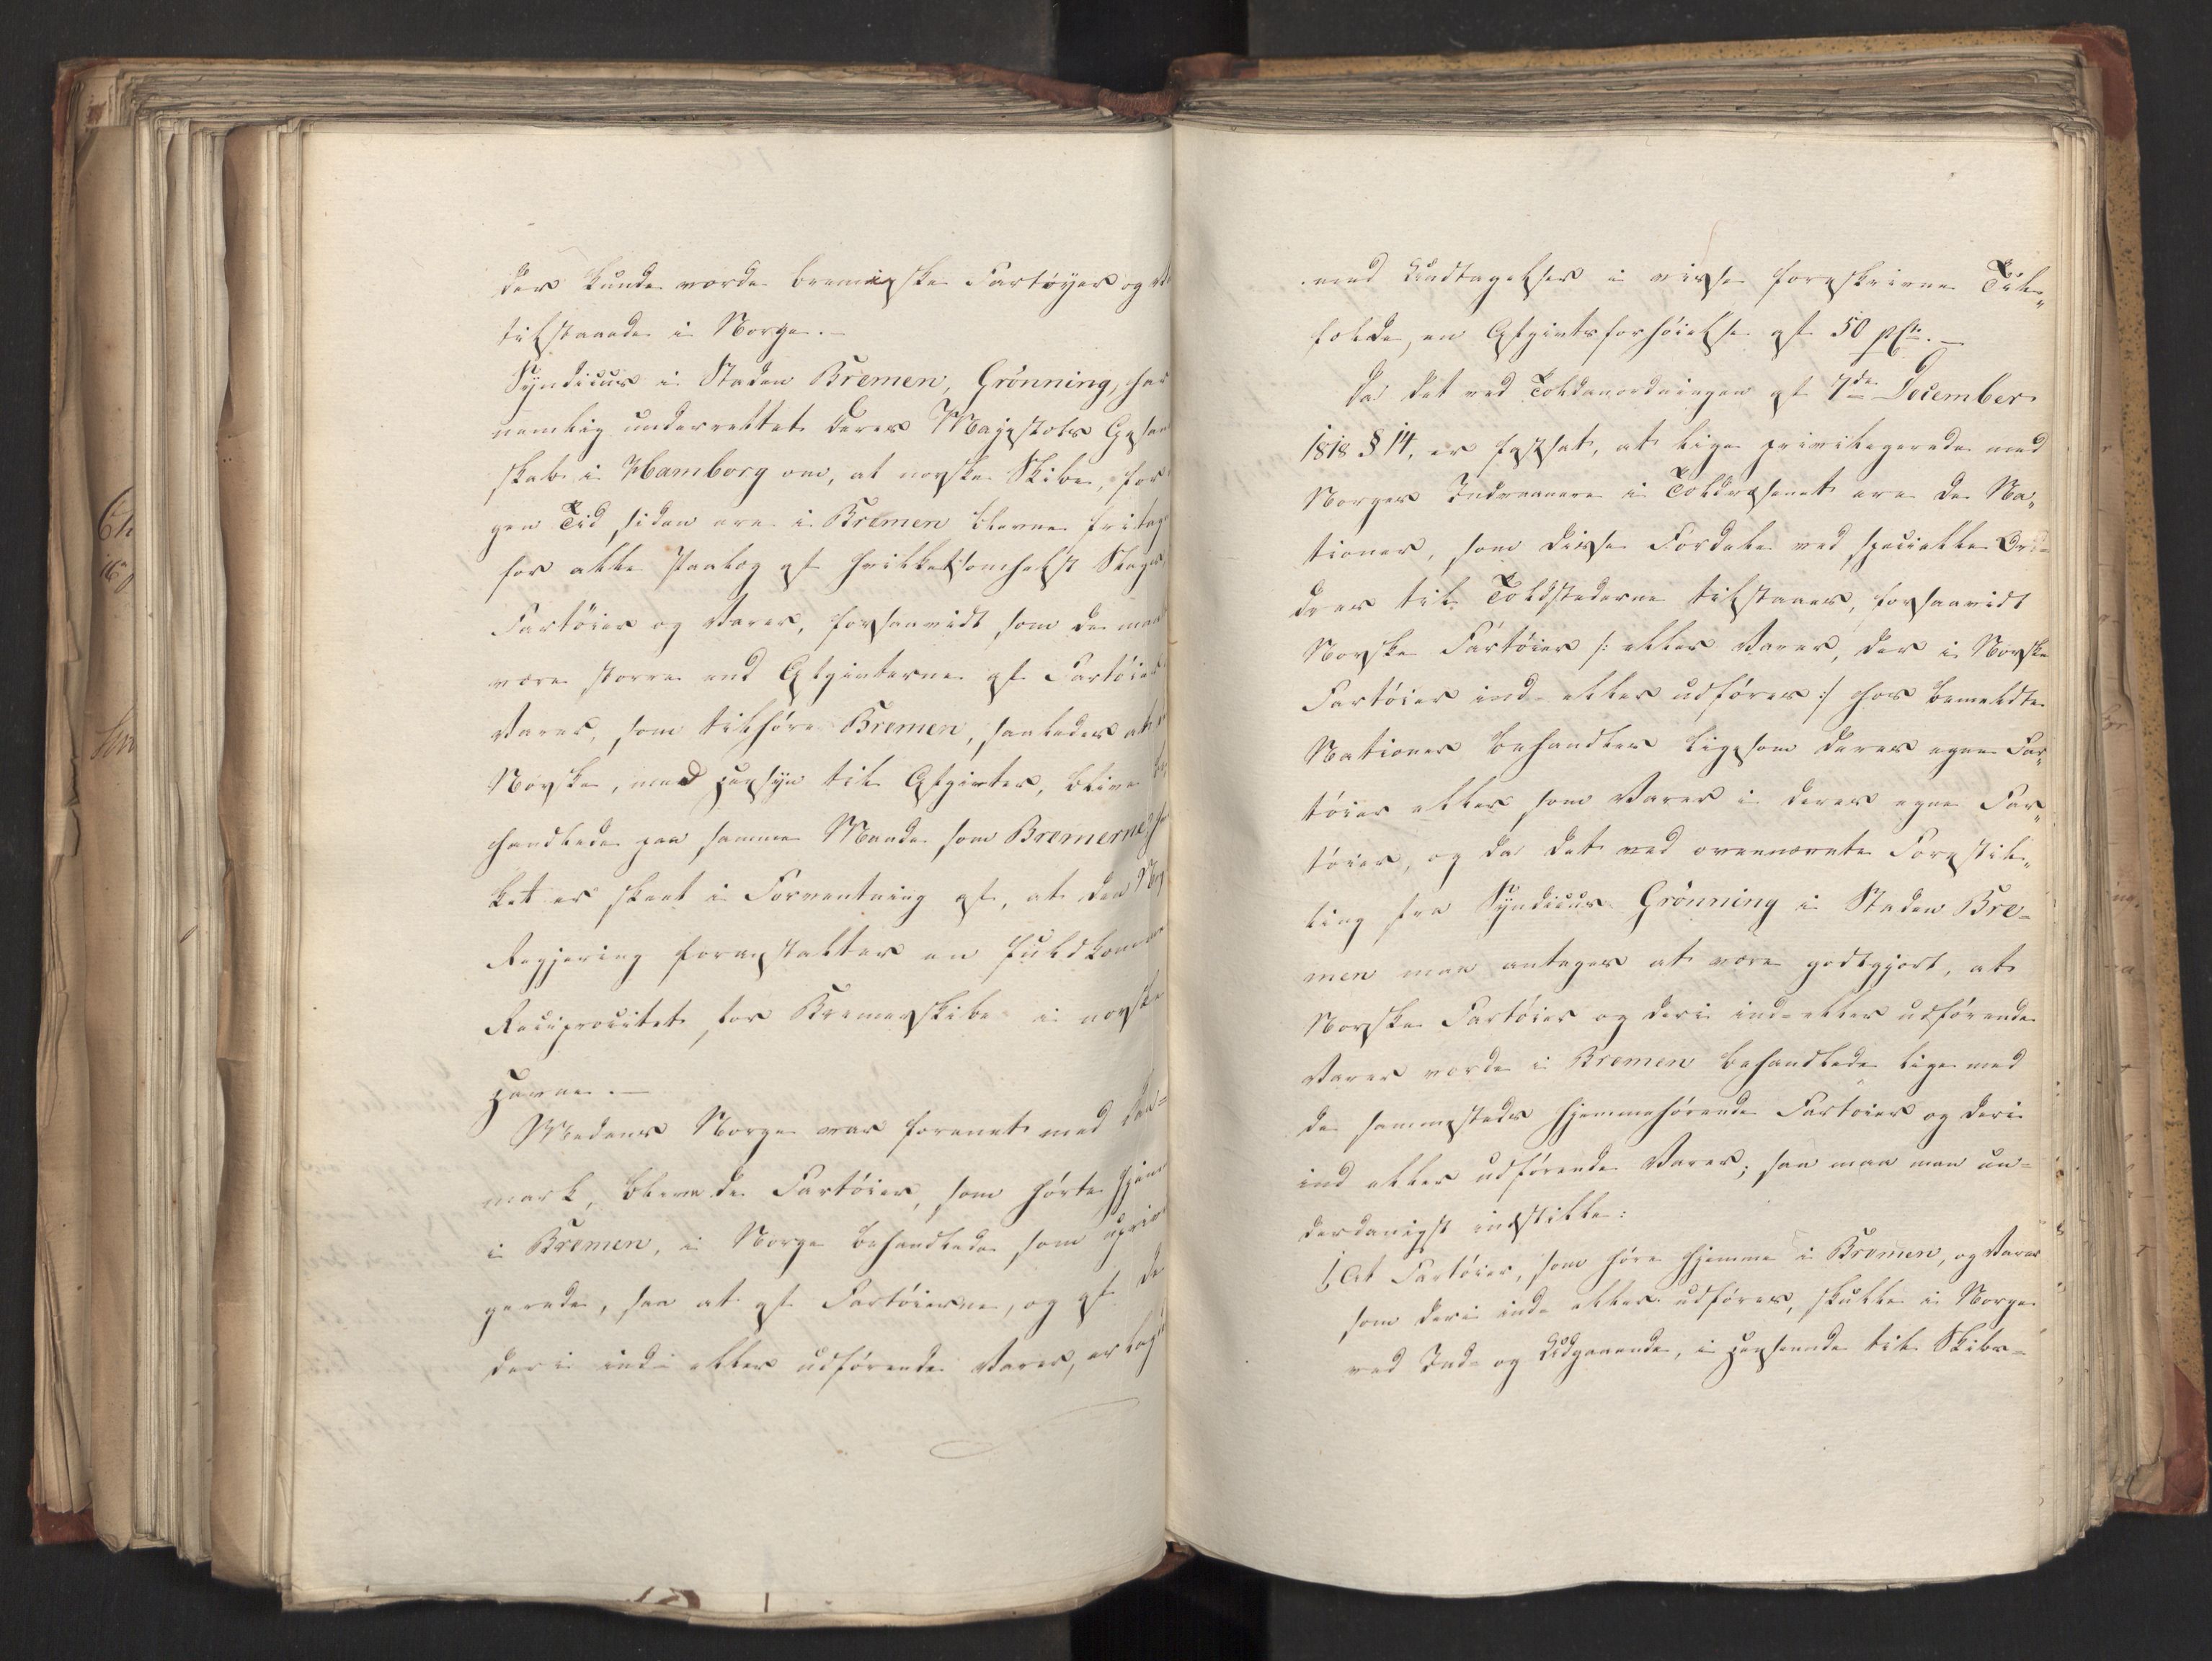 der kunde vorde bremiske Fartøyer og
tilstaaede i Norge.—
Syndicus i Staden Bremen, Grönning, har
nemlig underrettet Deres Majestæts Gesan
skab i Hamborg om, at norske Skibe, for
gen Tid siden ere i Bremen blevne fritag
for alle Paalæg af hvilketsomhelst Slags,
Fartöier og Varer, forsaavidt, som de maa
være større end Afgivterne af Fartöier
Varer, som tilhöre Bremen, saaledes at
Norske, med Hensyn til Afgivter, blive be
handlede paa samme Maade som Bremerne,
ket er skeet i Forventning af, at den
Regjering foranstalter en fuldkommen
Reciprocitet for Bremerskibe i norske
Havne.—
Medens Norge var forenet med Dan=
mark, bleve de Fartöier, som hørte hjem
i Bremen, i Norge behandlede som upriv
gerede, saa at af Fartöierne, og af de
deri ind- eller udførende Varer, erlag
med Undtagelser i visse foreskrevne Til„
fælde, en Afgivtsforhöielse af 50 pCt.—
Da det ved Toldanordningen af 7de December
1818 § 14, er fastsat, at lige privilegerede med
Norges Indvaanere i Toldvæsenet ere de Na„
tioner, som disse Fordele ved specielle Or-
drer til Toldstederne tilstaaes, forsaavidt
Norske Fartöier /: eller Varer, der i Norske
Fartöier ind- eller udføres :/ hos bemeldte
Nationer behandles ligesom deres egne Far„
töier eller som Varer i deres egne Far„
töier, og da det ved ovennævnte Forestil„
ling fra Syndicus Grönning i Staden Bre=
men maa antages at være godtgjort, at
Norske Fartöier og deri ind- eller udførende
Varer vorde i Bremen behandlede lige med
de sammesteds hjemmehörende Fartöier og deri
ind eller udførende Varer; saa maa man un=
derdanigst indstille:
1, At Fartöier, som høre hjemme i Bremen, og Varer
som deri ind- eller udføres, skulle i Norge
ved Ind- og Udgaaende, i Henseende til Skibs-